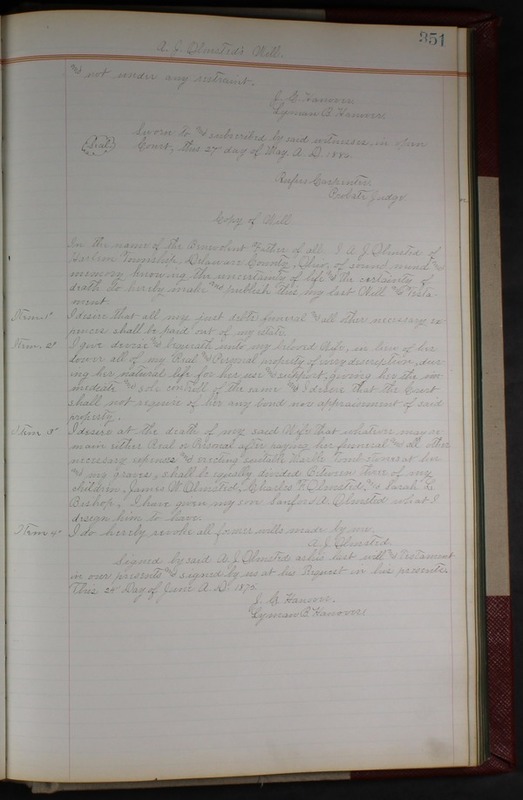 351
A. J. Olmsted's Will.
and not under any restraint.
J. G. Hanover
Lyman P. Hanover
Sworn to and subscribed by said witnesses, in open
(Seal) Court, this 27 day of May A. D. 1880.
Rufus Carpenter
Probate Judge
Copy of Will
In the name of the Benevolent Father of all. I A. J. Olmsted of
Harlem Township, Delaware County, Ohio, of sound mind and
memory, knowing the uncertainty of life and the certainty of
death do hereby make and publish this my last Will and Testa-
ment.
Item 1st I desire that all my just debts funeral and all other necessary ex-
penses shall be paid out of my estate.
Item 2d I give devise and bequeath unto my beloved Wife, in lieu of her
dower all of my Real and Personal property of my discretion, dur-
ing her natural life for her use and support, giving her the im-
mediate and sole controll of the same and I desire that the Court
shall not require of her any bond nor appraisement of said
property.
Item 3d I desire at the death of my said Wife that whatever may re-
main either Real or Personal after paying her funeral and all other
necessary expenses and erecting suitable Marble Tomb Stones at her
and my graves, shall be equally divided Between three of my
children, James W. Olmsted, Charles F. Olmsted, and Sarah L.
Bishop, I have given my son Sanford Olmsted what I
design him to have.
Item 4th I do hereby revoke all former wills made by me.
A. J. Olmsted
Signed by said A. J. Olmsted as his last will and Testament
in our presents and signed by us at his Request in his presents
This 28 Day of June A. D. 1875.
J. G. Hanover
Lyman P. Hanover